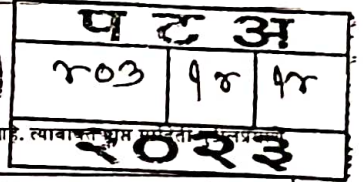 प ट अ
४०३ १४ १४
आहे. त्याबाबत
२०२३